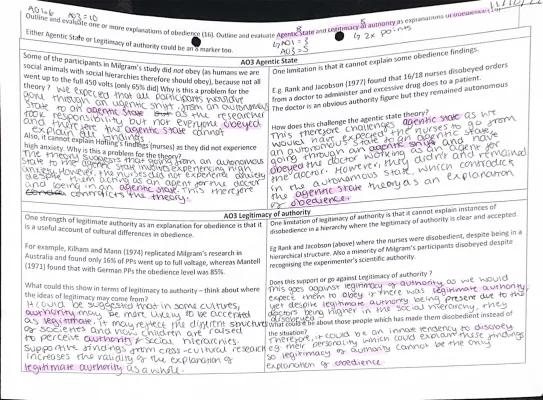 AO1=6 AO3=10
Outline and evaluate one or more explanations of obedience (16). Outline and evaluate Agentic State and Legitimacy of authority as explanations of obedience (16)
Either Agentic State or Legitimacy of authority could be an 8 marker too.
AO1 = 3
AO3 = 5
2x points
AO3 Agentic State
Some of the participants in Milgram's study did not obey (as humans we are
social animals with social hierarchies therefore should obey), because not all
went up to the full 450 volts (only 65% did) Why is this a problem for the
theory? We expected that all participants would've
gone through an agentic shift from an autonomous
state to an agentic state as the researcher
took responsibility but not everyone obeyed
and therefore the agentic state cannot
explain all findings
Also, it cannot explain Hofling's findings (nurses) as they did not experience
high anxiety. Why is this a problem for the theory?
The theory suggests that going from an autonomous
state to the agentic state involves experiencing high
anxiety. However, the nurses did not experience anxiety
despite them acting as an agent for the doctor
and being in an agentic state. This therefore
contradicts the theory.
One limitation is that it cannot explain some obedience findings.
E.g. Rank and Jacobson (1977) found that 16/18 nurses disobeyed orders
from a doctor to administer and excessive drug does to a patient.
The doctor is an obvious authority figure but they remained autonomous
How does this challenge the agentic state theory?
This therefore challenges agentic state as we
would have expected the nurses to go from
an autonomous state to an agentic state,
going through an agentic shift and have
obeyed the doctor working as an agent for
the doctor. However, they didn't and remained
in the autonomous state, which contradicts
the agentic state theory as an explanation
of obedience.
AO3 Legitimacy of authority
One strength of legitimate authority as an explanation for obedience is that it
is a useful account of cultural differences in obedience.
For example, Kilham and Mann (1974) replicated Milgram's research in
Australia and found only 16% of PPs went up to full voltage, whereas Mantell
(1971) found that with German PPs the obedience level was 85%.
What could this show in terms of legitimacy to authority – think about where
the ideas of legitimacy may come from?
It could be suggested that in some cultures,
authority may be more likely to be accepted
as legitimate. It may reflect the different structures
of societies and how children are raised
to percieve authority & social hierarchies.
Supportive findings from cross-cultural research
increases the validity of the explanation of
legitimate authority as a whole.
One limitation of legitimacy of authority is that it cannot explain instances of
disobedience in a hierarchy where the legitimacy of authority is clear and accepted
Eg Rank and Jacobson (above) where the nurses were disobedient, despite being in a
hierarchical structure. Also a minority of Milgram's participants disobeyed despite
recognising the experimenter's scientific authority.
Does this support or go against Legitimacy of authority ?
This goes against legitimacy of authority as we would
expect them to obey if there was legitimate authority,
yet despite legitimate authority being present due to the
doctors being higher in the social hierarchy, they
disobeyed
What could be about those people which has made them disobedient instead of
the situation?
Therefore, it could be an innate tendency to disobey
eg their personality which could explain these findings
so legitimacy of authority cannot be the only
explanation of obedience.